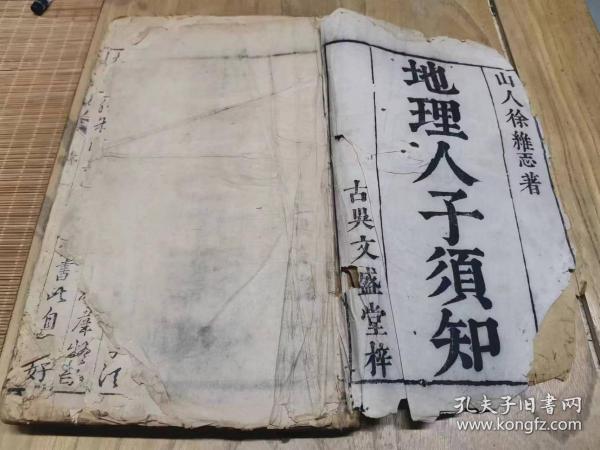 山人徐維志著
地理人子須知
古吳文盛堂梓
書此自
好
孔夫子旧书网
www.kongfz.com